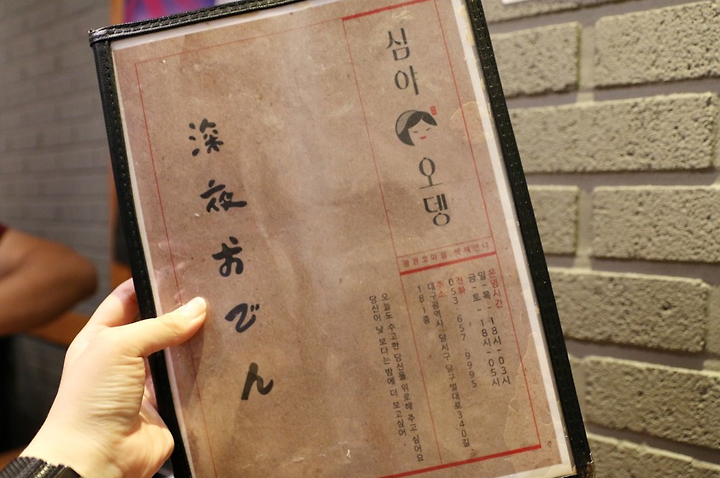 深夜おでん
심야
오뎅
운영시간
일-목 - 18시-03시
금-토 - 18시-05시
전화
053 657 9995
주소
대구광역시 달서구 달구벌대로340길
18 1층
오늘도 수고한 당신을 위로해 주고 싶어요
당신이 낮 보다는 밤에 더 보고싶어